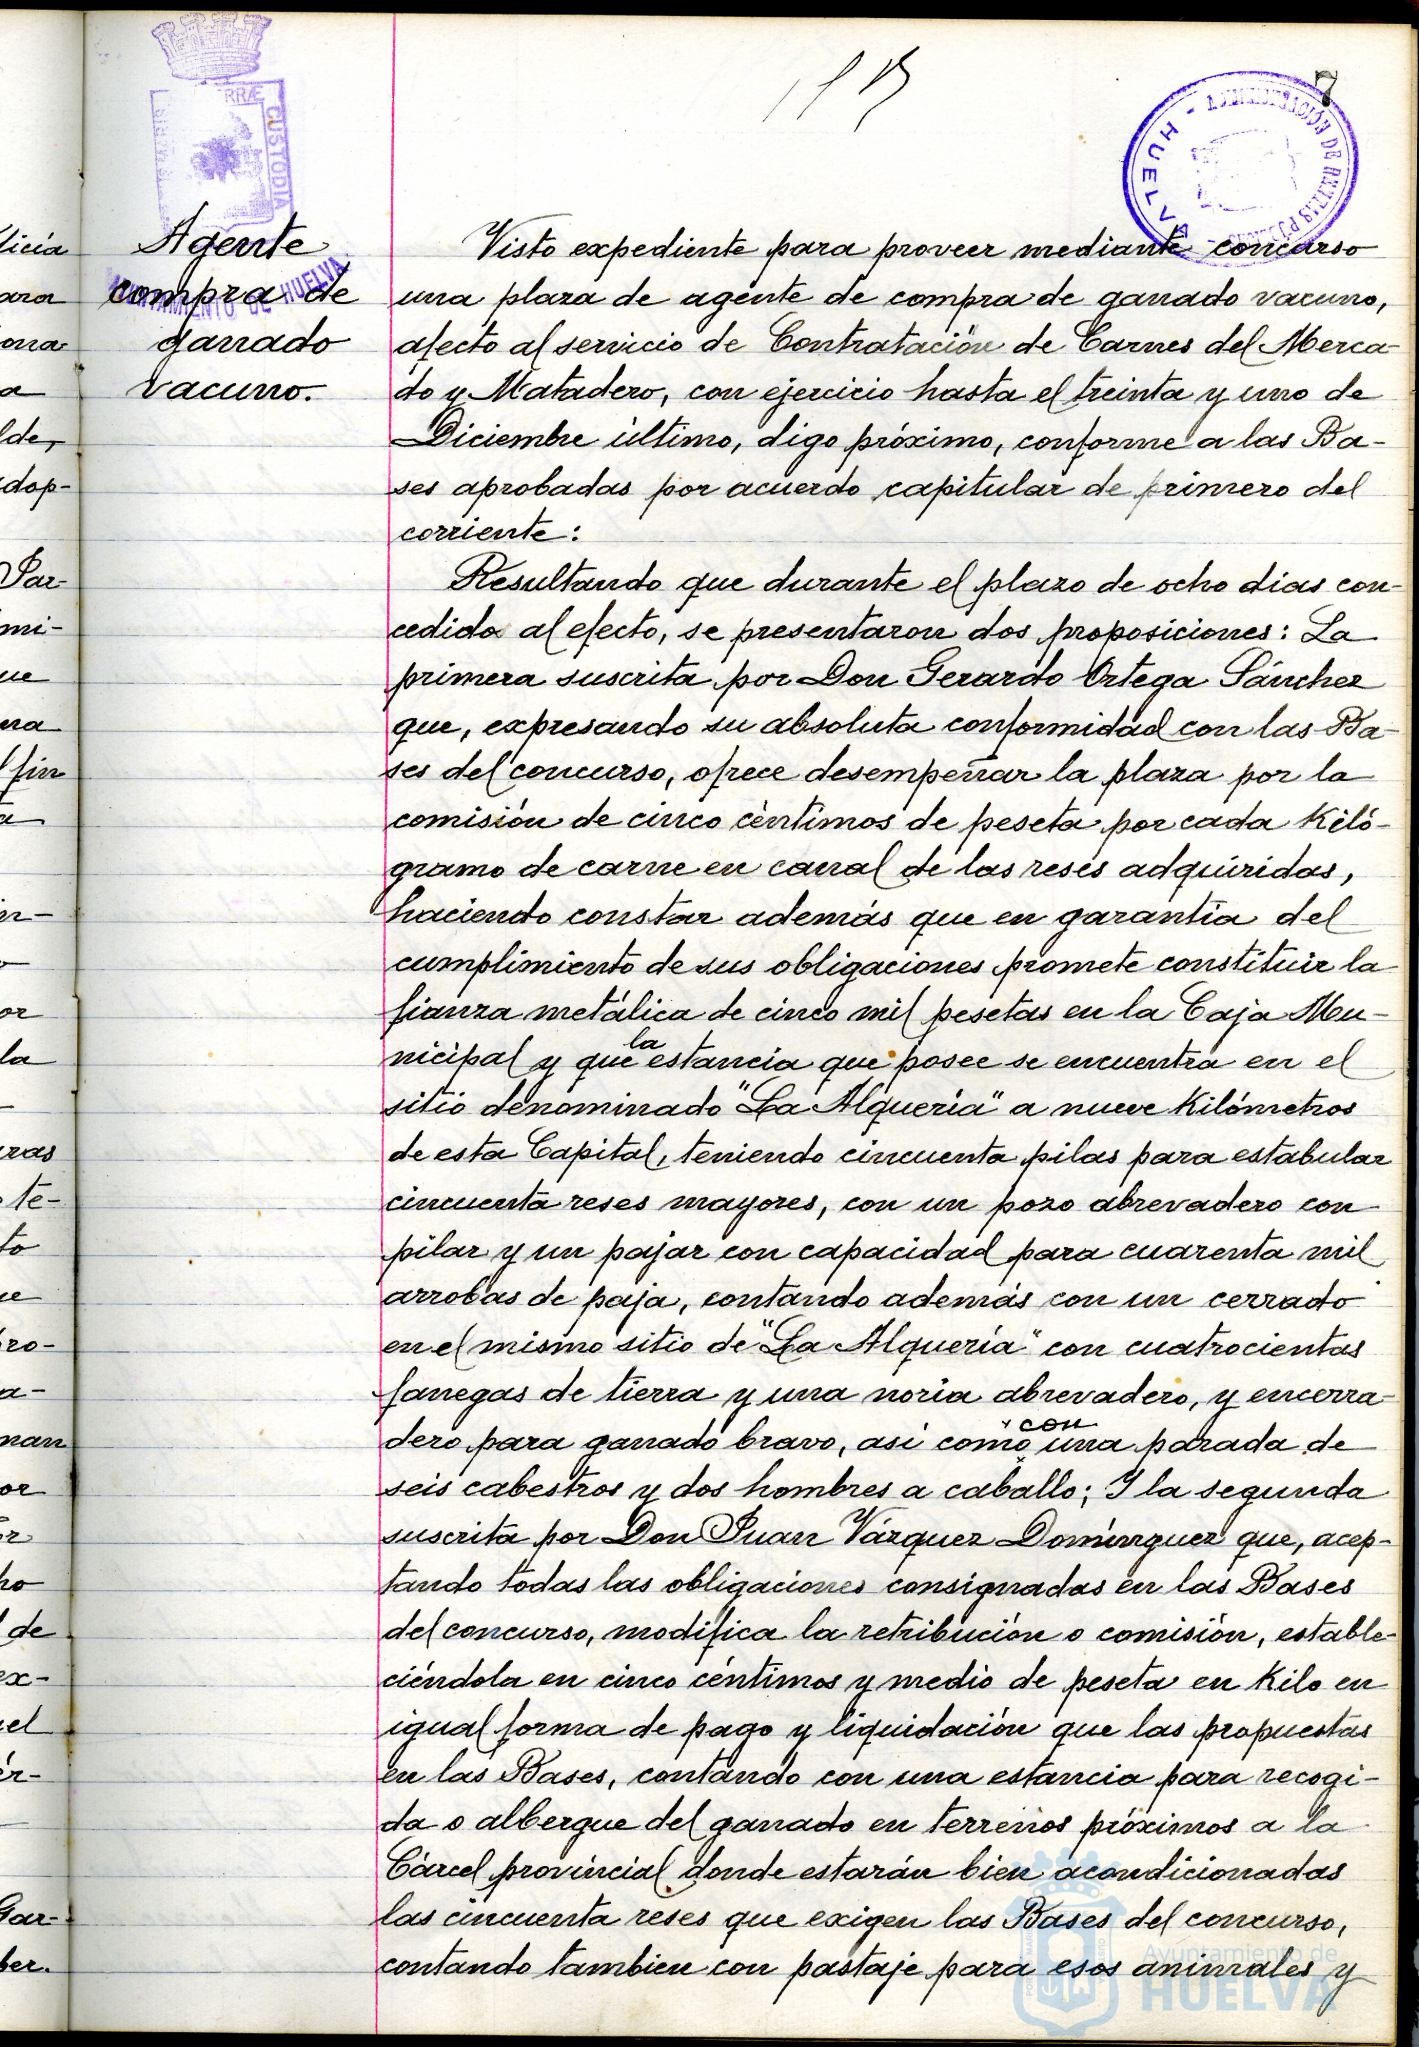 7
RRÆ
CUSTODIA
AYUNTAMIENTO DE HUELVA
ADMINISTRACIÓN DE RENTAS PÚBLICAS - HUELVA -
Agente
compra de
ganado
vacuno.
Visto expediente para proveer mediante concurso
una plaza de agente de compra de ganado vacuno,
afecto al servicio de Contratación de Carnes del Merca-
do y Matadero, con ejercicio hasta el treinta y uno de
Diciembre último, digo próximo, conforme a las Ba-
ses aprobadas por acuerdo capitular de primero del
corriente:
Resultando que durante el plazo de ocho dias con-
cedido al efecto, se presentaron dos proposiciones: La
primera suscrita por Don Gerardo Ortega Sánchez
que, expresando su absoluta conformidad con las Ba-
ses del concurso, ofrece desempeñar la plaza por la
comisión de cinco céntimos de peseta por cada Kiló-
gramo de carne en canal de las reses adquiridas,
haciendo constar además que en garantía del
cumplimiento de sus obligaciones promete constituir la
fianza metálica de cinco mil pesetas en la Caja Mu-
nicipal y que la estancia que posee se encuentra en el
sitio denominado "La Alquería" a nueve Kilómetros
de esta Capital, teniendo cincuenta pilas para estabular
cincuenta reses mayores, con un pozo abrevadero con
pilar y un pajar con capacidad para cuarenta mil
arrobas de paja, contando además con un cerrado
en el mismo sitio de "La Alquería" con cuatrocientas
fanegas de tierra y una noria abrevadero, y encerra-
dero para ganado bravo, así como con una parada de
seis cabestros y dos hombres a caballo; Y la segunda
suscrita por Don Juan Vázquez Domínguez que, acep-
tando todas las obligaciones consignadas en las Bases
del concurso, modifica la retribución o comisión, estable-
ciéndola en cinco céntimos y medio de peseta en Kilo en
igual forma de pago y liquidación que las propuestas
en las Bases, contando con una estancia para recogi-
da o albergue del ganado en terrenos próximos a la
Cárcel provincial donde estarán bien acondicionadas
las cincuenta reses que exigen las Bases del concurso,
contando tambien con pastaje para esos animales y
Ayuntamiento de
HUELVA